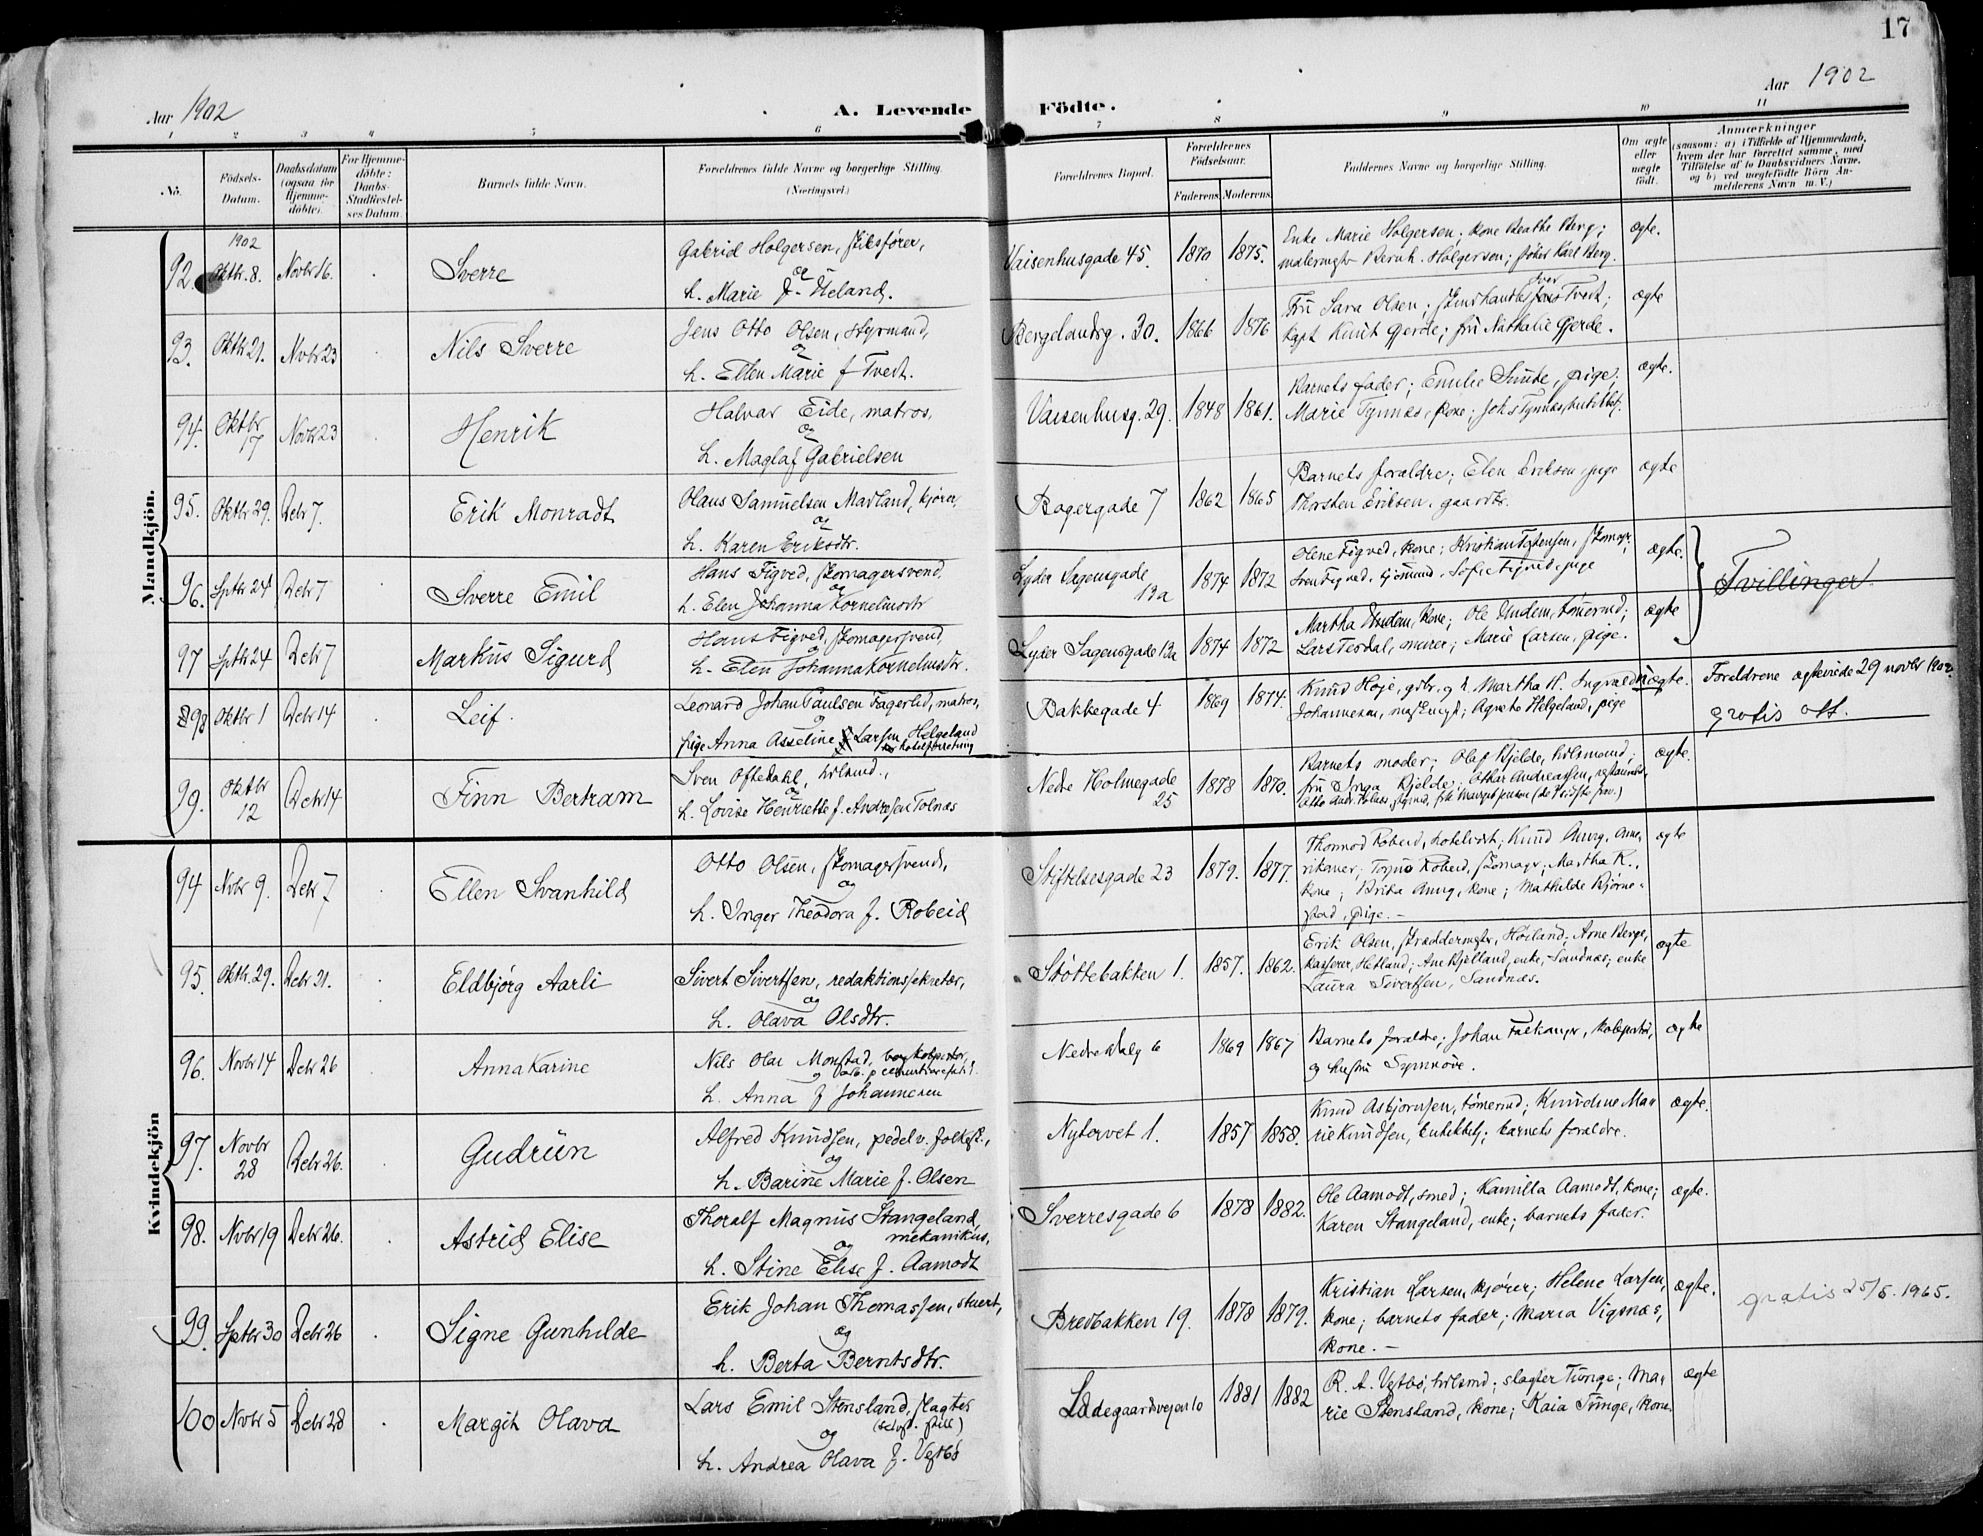 17
Aar 1902
A. Levende Födte.
Aar 1902
1 2 3 4 5 6 7 8 9 10 11
No.
Födsels-
Datum.
Daabsdatum
(ogsaa for
Hjemme-
döbte).
For Hjemme-
döbte:
Daabs-
Stadfæstel-
ses Datum.
Barnets fulde Navn.
Forældrenes fulde Navne og borgerlige Stilling.
(Næringsvei.)
Forældrenes Bopæl.
Forældrenes
Födselsaar.
Faderens. Moderens.
Faddernes Navne og borgerlige Stilling.
Om ægte
eller
uægte
födt.
Anmærkninger
(saasom: a) i Tilfælde af Hjemmedaab,
hvem der har forrettet samme, med
Tilföielse af to Daabsvidners Navne,
og b) ved uægtefödte Börn An-
melderens Navn m. V.)
Mandkjön.
92. 1902 Oktbr. 8. Novbr 16. Sverre
Gabriel Holgersen, skibsfører,
og
h. Marie f. Ueland.
Vaisenhusgade 45. 1870 1875.
Enke Marie Holgersen; kone Beathe Berg;
malermgtr Bernh. Holgersen; Karl Berg.
ægte.
93. Oktbr 21. Novbr 23 Nils Sverre
Jens Otto Olsen, styrmand,
og
h. Ellen Marie f Tvedt.
Bergelandsg. 30. 1866 1876
Fru Sara Olsen; Tvedt;
kapt Knut Gjerde; fru Nathalie Gjerde.
ægte
94. Oktbr 17 Novbr 23 Henrik
Halvar Eide, matros,
og
h. Maglaf Gabrielsen
Vaisenhusg. 29. 1848 1861.
Barnets fader; Emilie pige;
Marie Tynnæs, kone; Johs Tynnæs,
ægte.
95. Oktbr 29. Debr 7. Erik Monradt
Olaus Samuelsen Marland, kjører,
og
h. Karen Eriksdtr.
Bagergade 7 1862 1865
Barnets forældre; Elen Eriksen pige
Thorsten Eriksen, gaardbr.
ægte
96. Sptbr 24 Debr 7 Sverre Emil
Hans Figved, skomagersvend,
og
h. Elen Johanna Kornelinsdtr
Lyder Sagensgade 13a 1874 1872
Olene Figved, kone; Kristian skomagr,
Sven Figved, Sofie Figved, pige
ægte.
Tvillinger
97 Sptbr 24 Debr 7 Markus Sigurd
Hans Figved, skomagersvend,
og
h. Elen Johanna Kornelinsdtr.
Lyder Sagensgade 13a 1874 1872
Martha Undem, kone; Ole Undem, tømermd;
Lars Tesdal, murer; Marie Larsen, pige.
ægte
98 Oktbr 1 Debr 14 Leif.
Leonard Johan Paulsen Fagerlid, matros,
og
pige Anna Asseline Larsen Helgeland
Bakkegade 4 1869 1874.
Knud Høje, gdbr. og h. Martha H. Ingvald
Johannesen, Agnete Helgeland, pige
uægte.
Foreldrene egteviede 29 novbr 1902
gratis att.
99. Oktbr 12 Debr 14 Finn Bertram
Sven Oftedahl, hdlsmd.,
og
h. Lovise Henriette f. Andersen Tolnæs
Nedre Holmegade 25 1878 1870.
Barnets moder; Olaf Kjelde, hdlsmand;
fru Inga Kjelde; Othar Andreassen,
ægte.
Kvindekjön
94 Novbr 9. Debr 7 Ellen Svanhild
Otto Olsen, skomagersvend,
og
h. Inger Theodora f. Robeid
Stiftelsesgade 23 1879. 1877.
Thormod Robeid, Knud Aurg, Ame-
rikaner; Robeid, skomagr; Martha R.,
kone; Brita Aurg, kone; Mathilde Bjørne-
stad, pige. -
ægte
95. Oktbr. 29. Debr 21. Eldbjørg Aarli
Sivert Sivertsen, redaktionssekretær,
og
h. Olava Olsdtr.
Støttebakken 1. 1857. 1862.
Erik Olsen, skræddermgtr, Høiland; Arne Berge,
kasserer, Hetland; Ane Kjelland, enke, Sandnæs; enke
Laura Sivertsen, Sandnæs.
ægte
96. Novbr 14 Debr 26 Anna Karine
Nils Olai Monstad,
og
h. Anna f Johannesen
Nedre Dalg 6 1869 1867
Barnets forældre; Johan kolportør,
og hustru Synnøve.
ægte
97. Novbr 28 Debr 26. Gudrun
Alfred Knudsen, pedel v. folkesk.,
og
h. Barine Marie f. Olsen
Nytorvet 1. 1857 1858.
Knud Asbjørnsen, tømermd; Knudine Ma-
rie Knudsen, barnets forældre.
ægte.
98. Novbr 19 Debr 26. Astrid Elise
Thoralf Magnus Stangeland,
mekanikus,
og
h. Stine Elise f. Aamodt
Sverresgade 6 1878 1882.
Ole Aamodt, smed; Kamilla Aamodt, kone;
Karen Stangeland, enke; barnets fader.
ægte.
99. Sptbr 30 Debr 26 Signe Gunhilde
Erik Johan Thomassen, stuert,
og
h. Berta Berntsdtr.
Bredbakken 19. 1878 1879.
Kristian Larsen, kjører; Helene Larsen,
kone; barnets fader; Maria Vignæs,
kone. -
ægte.
gratis 25/5. 1965.
100 Novbr 5 Debr 28 Margit Olava
Lars Emil Stensland, slagter
(selvst. still)
og
h. Andrea Olava f. Vestbø
Ladegaardsvejen 10 1881 1882
R. A. Vestbø, hdlsmd; slagter Tunge; Ma-
rie Stensland, kone; Kaia Tunge, kone.
ægte